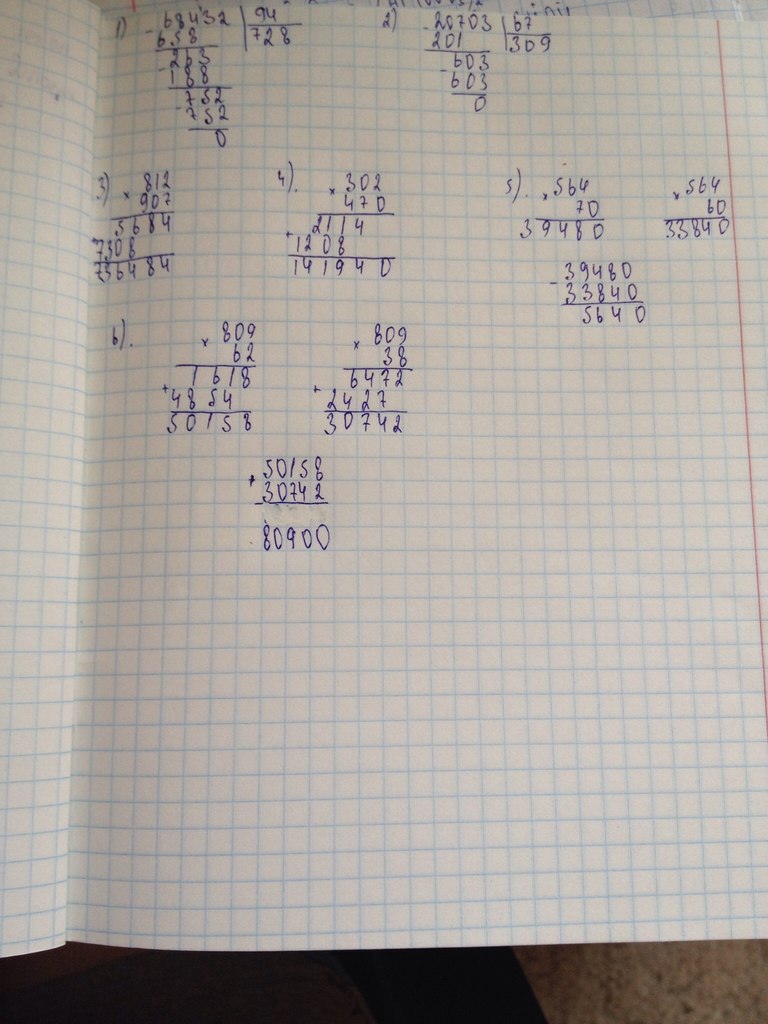 1) - 68432 | 94
658 728
- 263
188
- 752
752
0
2) - 20703 | 67
201 309
- 603
603
0
3) × 812
907
5684
+ 7308
736484
4). × 302
470
2114
+ 1208
141940
5). × 564
70
39480
× 564
60
33840
- 39480
33840
5640
6). × 809
62
1618
+ 4854
50158
× 809
38
6472
+ 2427
30742
+ 50158
30742
80900